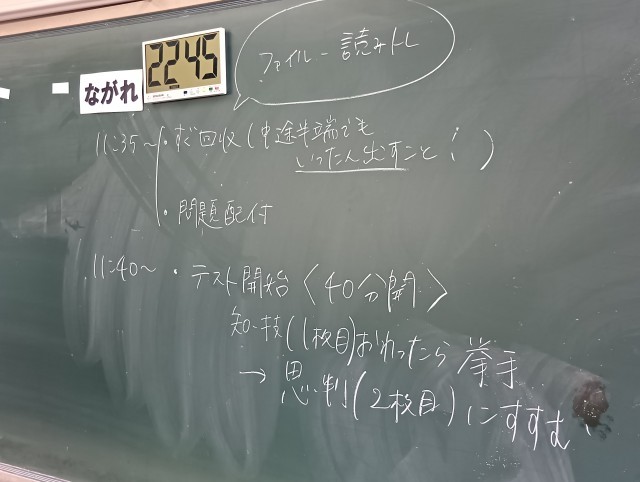 ファイル - 読みトレ
22 45
ながれ
11:35~ ・すぐ回収(中途半端でも
いったん出すこと!)
・問題配付
11:40~ ・テスト開始〈40分開〉
知・技(1枚目)おわったら挙手
→思・判(2枚目)にすすむ